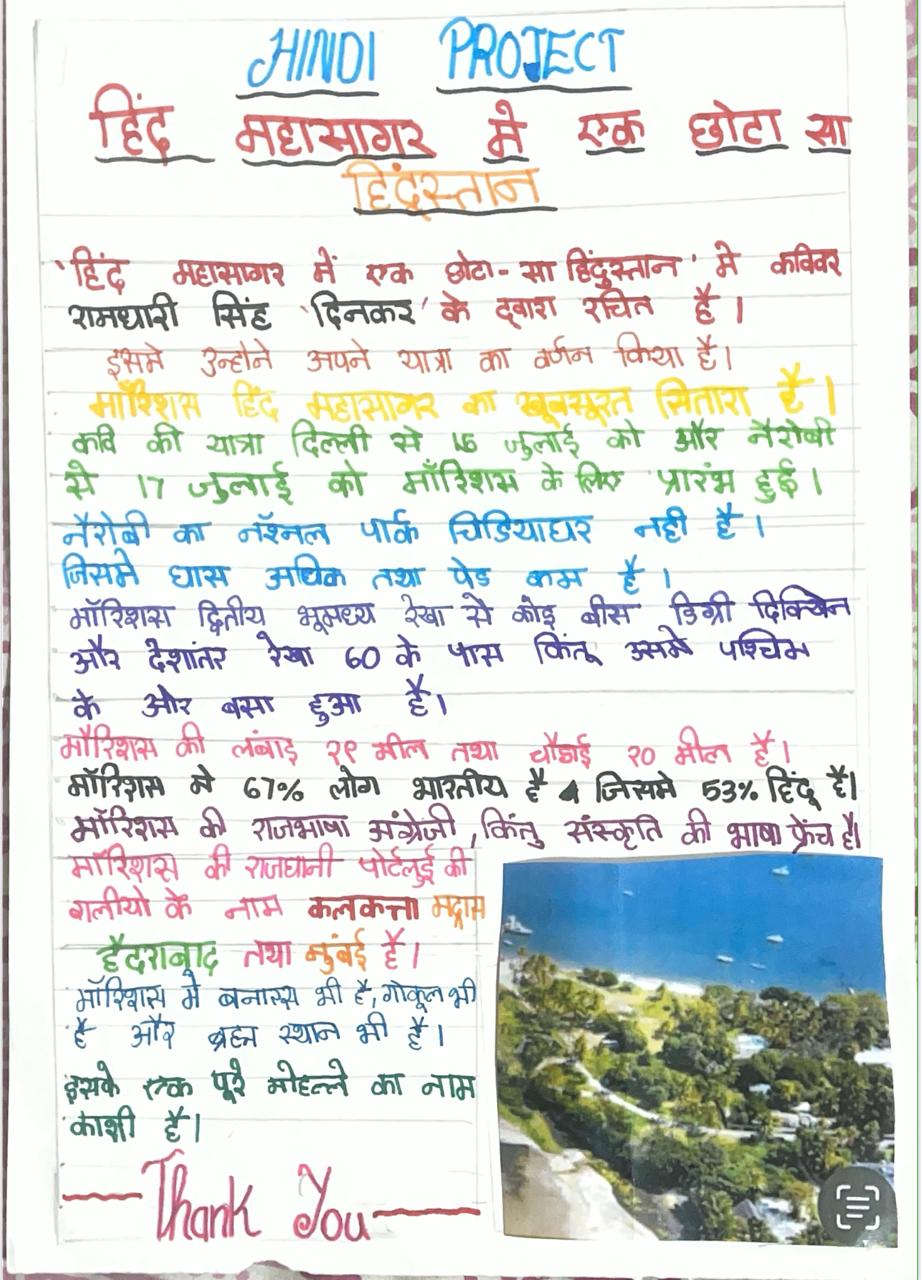 HINDI PROJECT
हिंद महासागर मे एक छोटा सा
हिंदुस्तान
'हिंद महासागर में एक छोटा-सा हिंदुस्तान' मे कविवर
रामधारी सिंह 'दिनकर' के द्वारा रचित है।
इसमे उन्होने अपने यात्रा का वर्णन किया है।
मॉरिशस हिंद महासागर का खूबसूरत सितारा है।
कवि की यात्रा दिल्ली से 15 जुलाई को और नैरोबी
से 17 जुलाई को मॉरिशस के लिए प्रारंभ हुई।
नैरोबी का नॅश्नल पार्क चिडियाघर नही है।
जिसमे घास अधिक तथा पेड कम है।
मॉरिशस द्वितीय भूमध्य रेखा से कोइ बीस डिग्री दिक्खिन
और देशांतर रेखा 60 के पास किंतू उसमे पश्चिम
के और बसा हुआ है।
मॉरिशस की लंबाइ २९ मील तथा चौडाई २० मील है।
मॉरिशस मे 67% लोग भारतीय है जिसमे 53% हिंदू है।
मॉरिशस की राजभाषा अंग्रेजी, किंतु संस्कृति की भाषा फ्रेंच है।
मॉरिशस की राजधानी पोर्टलुई की
गलीयो के नाम कलकत्ता मद्रास
हैदराबाद तथा मुंबई है।
मॉरिशस मे बनारस भी है, गोकूल भी
है और ब्रह्म स्थान भी है।
इसके एक पूरे मोहल्ले का नाम
काशी है।
Thank You